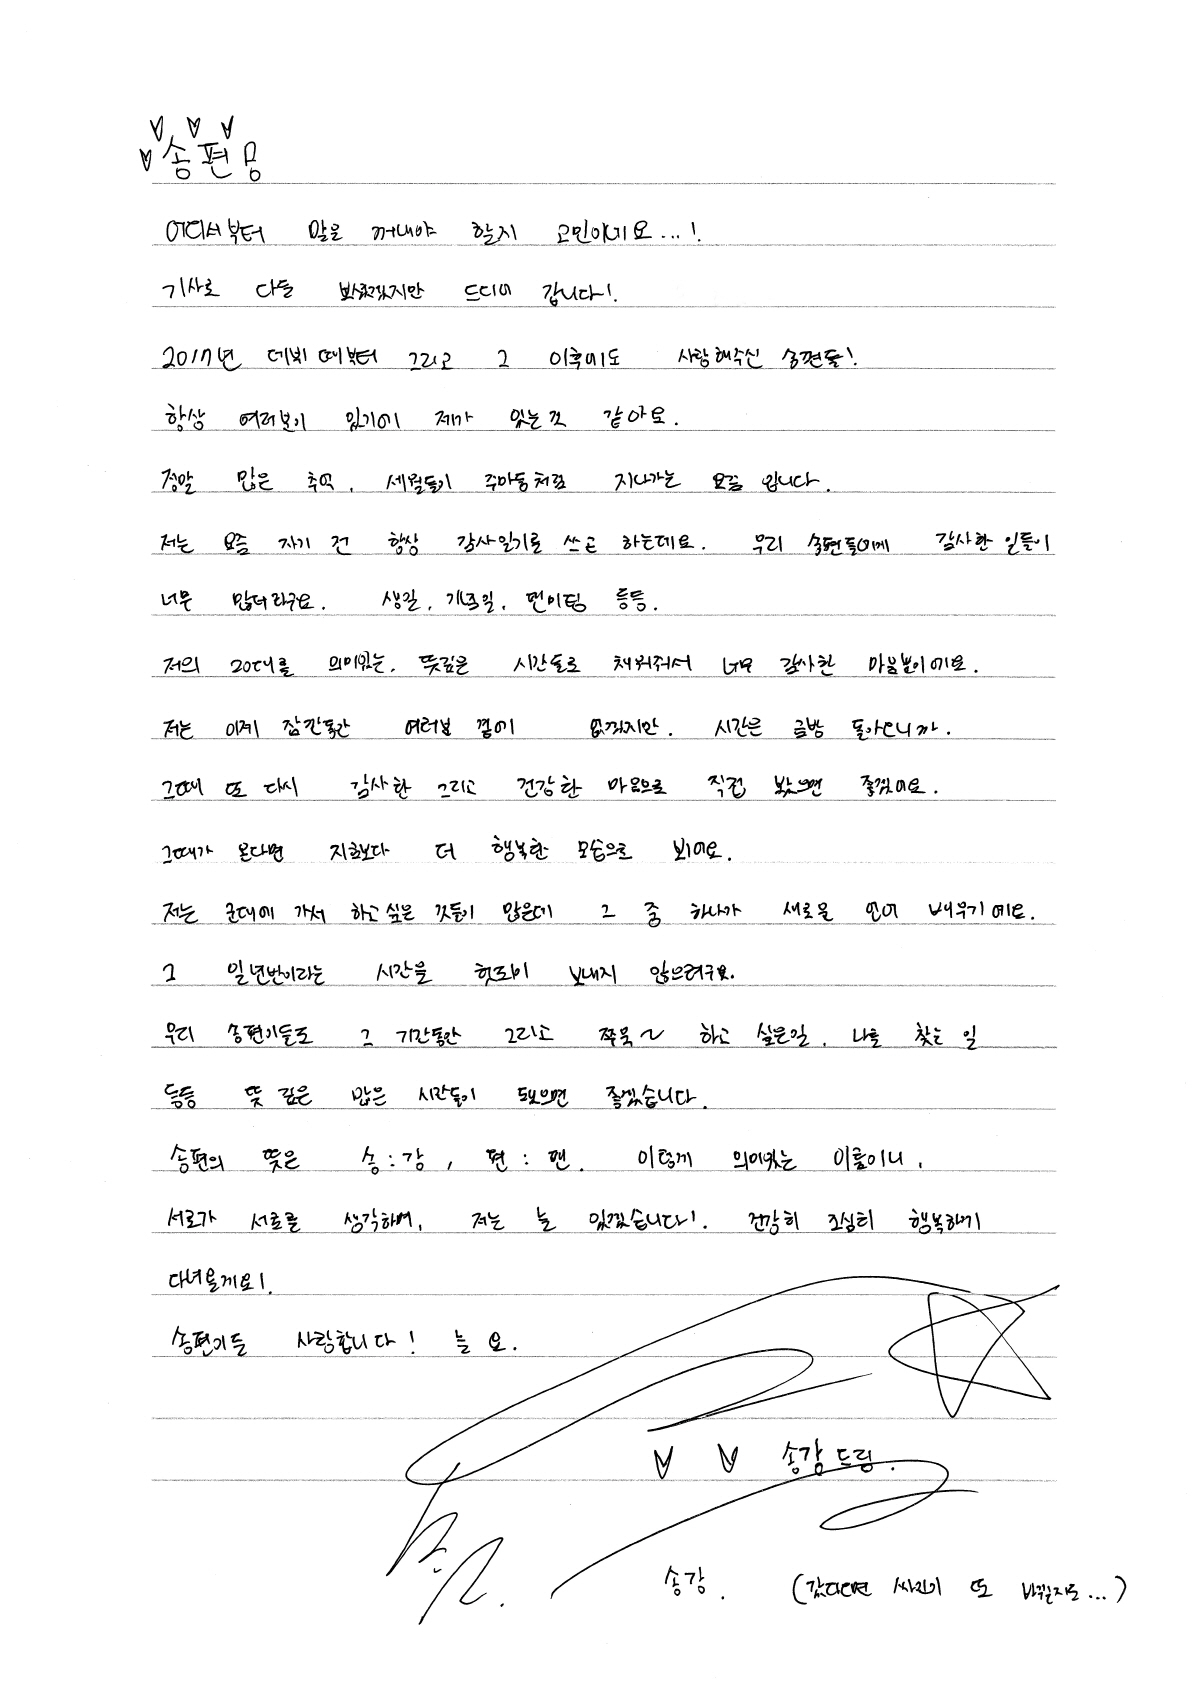 송편몽
어디서부터 말을 꺼내야 할지 고민이네요...!
기사로 다들 보셨겠지만 드디어 갑니다!
2017년 데뷔 때부터 그리고 그 이후에도 사랑해주신 송편들!
항상 여러분이 있기에 제가 있는것 같아요.
정말 많은 추억, 세월들이 주마등처럼 지나가는 요즘 입니다.
저는 요즘 자기 전 항상 감사일기를 쓰곤 하는데요. 우리 송편들에게 감사한 일들이
너무 많더라구요. 생일, 기념일, 팬미팅 등등.
저의 20대를 의미있는, 뜻깊은 시간들로 채워줘서 너무 감사한 마음뿐이에요.
저는 이제 잠깐동안 여러분 곁에 없겠지만, 시간은 금방 돌아오니까.
그때 또 다시 감사한 그리고 건강한 마음으로 직접 봤으면 좋겠어요.
그때가 온다면 지금보다 더 행복한 모습으로 봬어요.
저는 군대에 가서 하고싶은 것들이 많은데 그 중 하나가 새로운 언어 배우기예요.
그 일년반이라는 시간을 헛되이 보내지 않으려구요.
우리 송편이들도 그 기간동안 그리고 쭈욱~ 하고 싶은일, 나를 찾는 일
등등 뜻 깊은 많은 시간들이 됐으면 좋겠습니다.
송편의 뜻은 송:강, 편:팬. 이렇게 의미있는 이름이니,
서로가 서로를 생각하며, 저는 늘 있겠습니다!. 건강히 조심히 행복하게
다녀올게요!.
송편이들 사랑합니다! 늘 요.
송강드림.
송강. (갔다오면 싸인이 또 바뀔지도...)